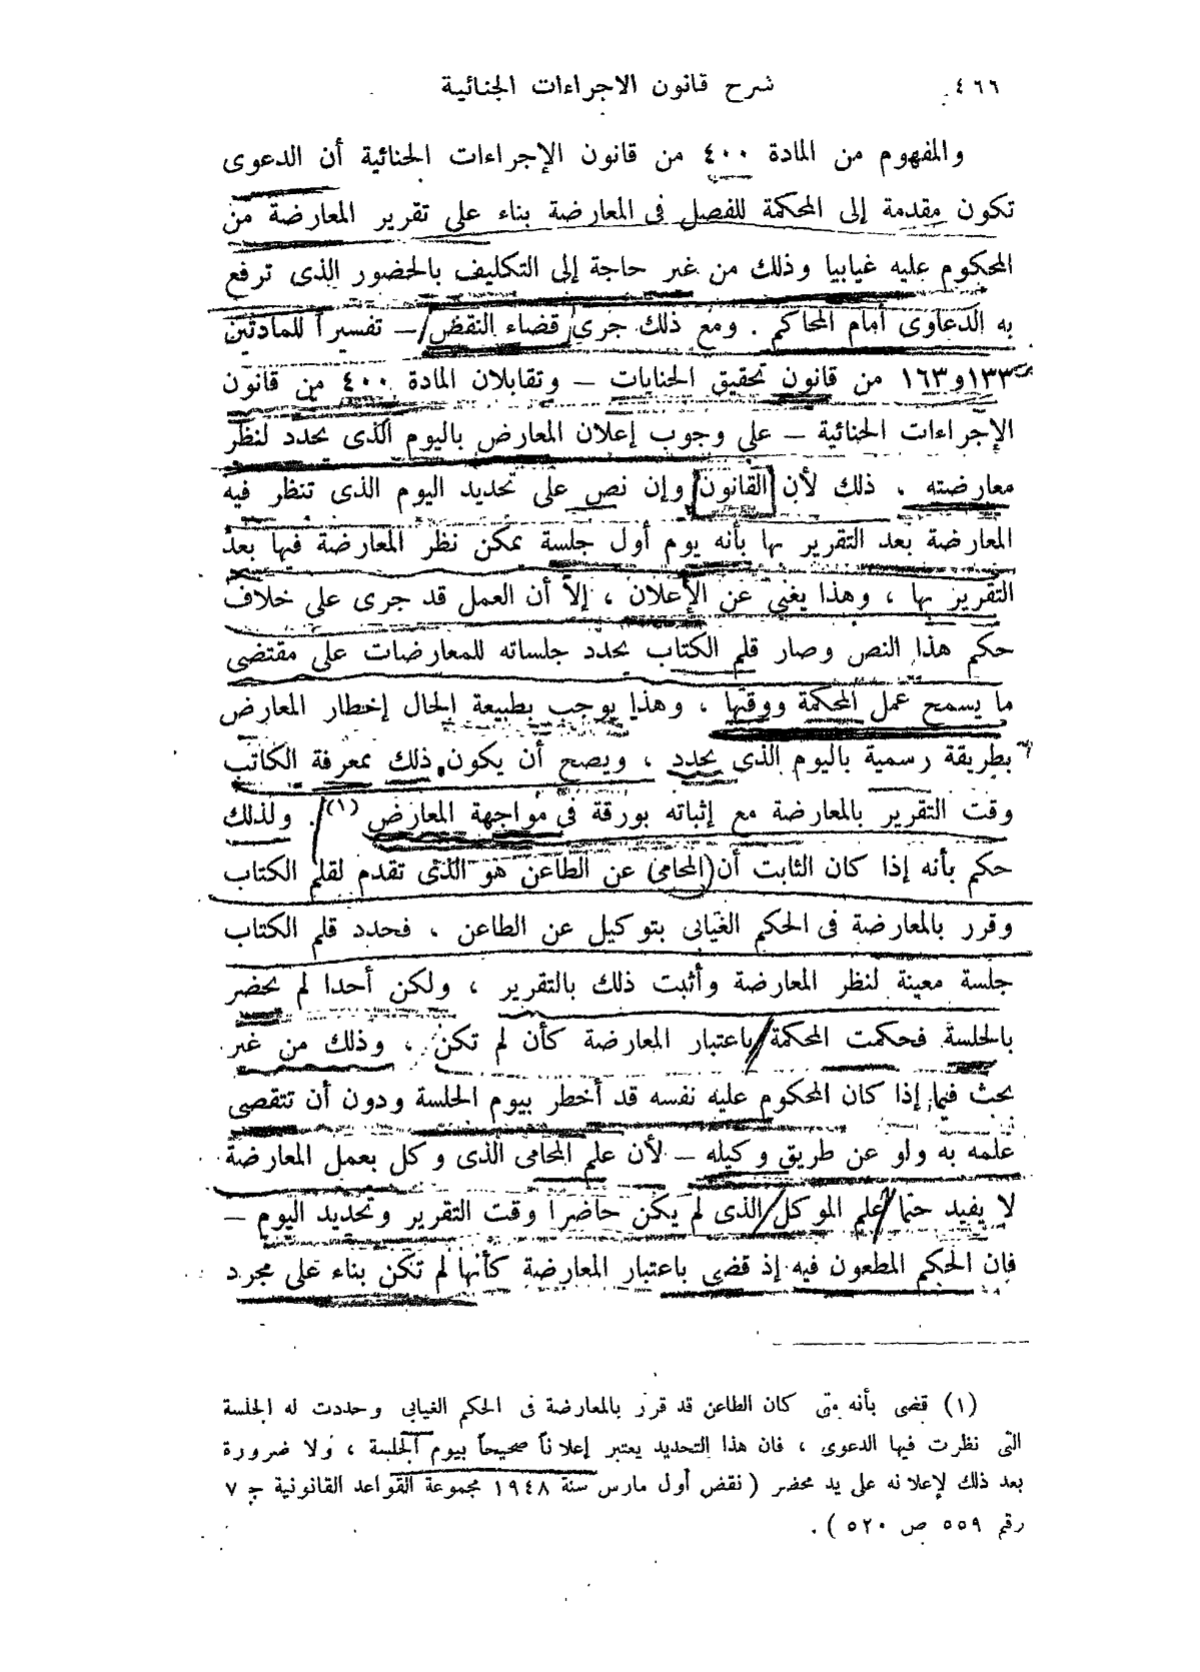 ٤٦٦ شرح قانون الاجراءات الجنائية
والمفهوم من المادة ٤٠٠ من قانون الإجراءات الجنائية أن الدعوى
تكون مقدمة إلى المحكمة للفصل فى المعارضة بناء على تقرير المعارضة من
المحكوم عليه غيابيا وذلك من غير حاجة إلى التكليف بالحضور الذى ترفع
به الدعاوى أمام المحاكم . ومع ذلك جرى قضاء النقض – تفسيراً للمادتين
١٣٣ و١٦٣ من قانون تحقيق الجنايات – وتقابلان المادة ٤٠٠ من قانون
الإجراءات الجنائية – على وجوب إعلان المعارض باليوم الذى يحدد لنظر
معارضته ، ذلك لأن القانون وإن نص على تحديد اليوم الذى تنظر فيه
المعارضة بعد التقرير بها بأنه يوم أول جلسة يمكن نظر المعارضة فيها بعد
التقرير بها ، وهذا يغنى عن الإعلان ، إلاّ أن العمل قد جرى على خلاف
حكم هذا النص وصار قلم الكتاب يحدد جلساته للمعارضات على مقتضى
ما يسمح عمل المحكمة ووقتها ، وهذا يوجب بطبيعة الحال إخطار المعارض
بطريقة رسمية باليوم الذى يحدد ، ويصح أن يكون ذلك بمعرفة الكاتب
وقت التقرير بالمعارضة مع إثباته بورقة فى مواجهة المعارض (١) . ولذلك
حكم بأنه إذا كان الثابت أن المحامى عن الطاعن هو الذى تقدم لقلم الكتاب
وقرر بالمعارضة فى الحكم الغيابى بتوكيل عن الطاعن ، فحدد قلم الكتاب
جلسة معينة لنظر المعارضة وأثبت ذلك بالتقرير ، ولكن أحدا لم يحضر
بالجلسة فحكمت المحكمة باعتبار المعارضة كأن لم تكن ، وذلك من غير
بحث فيما إذا كان المحكوم عليه نفسه قد أخطر بيوم الجلسة ودون أن تتقصى
علمه به ولو عن طريق وكيله – لأن علم المحامى الذى وكل بعمل المعارضة
لا يفيد حتما علم الموكل الذى لم يكن حاضرا وقت التقرير وتحديد اليوم –
فان الحكم المطعون فيه إذ قضى باعتبار المعارضة كأنها لم تكن بناء على مجرد
(١) قضى بأنه متى كان الطاعن قد قرر بالمعارضة فى الحكم الغيابى وحددت له الجلسة
التى نظرت فيها الدعوى ، فان هذا التحديد يعتبر إعلاناً صحيحاً بيوم الجلسة ، ولا ضرورة
بعد ذلك لإعلانه على يد محضر ( نقض أول مارس سنة ١٩٤٨ مجموعة القواعد القانونية ج ٧
رقم ٥٥٩ ص ٥٢٠ ) .